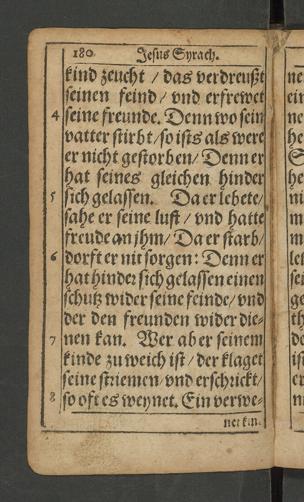 180 Jesus Syrach.
kind zeucht / das verdreußt
seinen feind / vnd erfrewet
4 seine freunde. Denn wo sein
vatter stirbt / so ists als were
er nicht gestorben / Denn er
hat seines gleichen hinder
5 sich gelassen. Da er lebete /
sahe er seine lust / vnd hatte
freude an jhm / Da er starb /
6 dorfft er nit sorgen: Denn er
hat hinder sich gelassen einen
schutz wider seine feinde / vnd
der den freunden wider die-
7 nen kan. Wer aber seinem
kinde zu weich ist / der klaget
seine striemen vnd erschrickt /
8 so offt es weynet. Ein verwe-